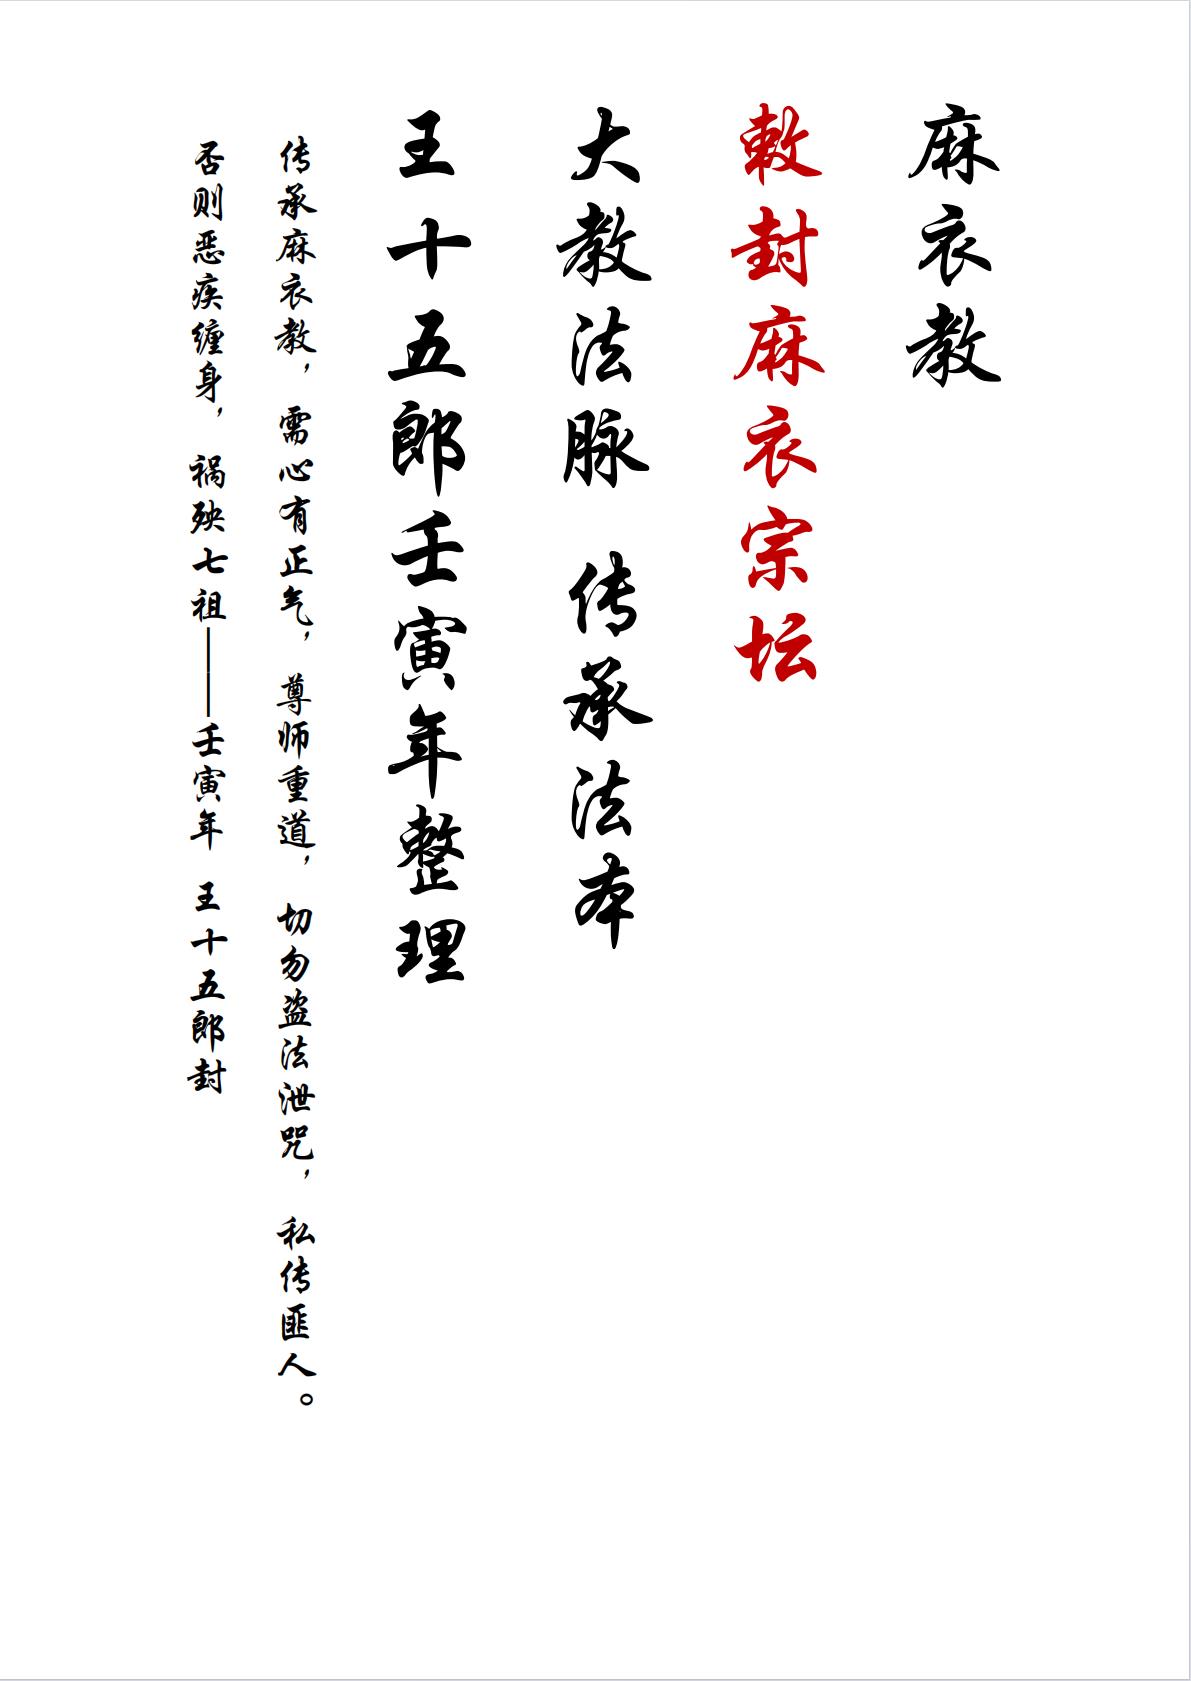 麻衣教
敕封麻衣宗坛
大教法脉 传承法本
王十五郎壬寅年整理
传承麻衣教，需心有正气，尊师重道，切勿盗法泄咒，私传匪人。
否则恶疾缠身，祸殃七祖——壬寅年 王十五郎封